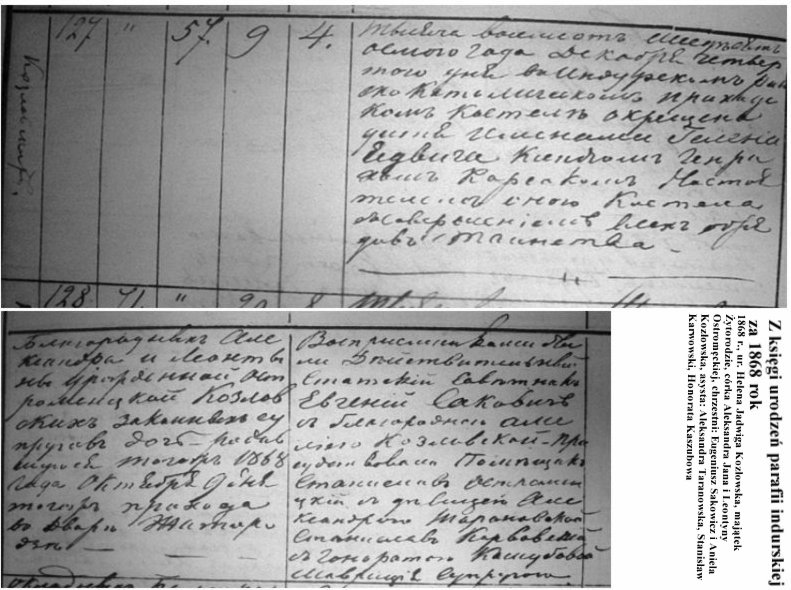 127 " 57. 9 4.
Козловская
Тысяча восемсотъ
осмого года Декабря четвер
того дня въ Индурскомъ рим
ско Католическомъ приходс
комъ Костелѣ окрещена
именами Гелена
Ядвига Ксендзомъ Генри
хомъ Корсакомъ Настоя
телемъ оного Костела
съ совершеніемъ всехъ обря
довъ таинства
128 71 "
Благородныхъ Але
ксандра и Леонти
ны урожденной Ост
роменцкой Козлов
скихъ законныхъ су
пруговъ дочь родив
шуюся тогожъ 1868
года Октября 9 дня
тогожъ прихода
въ дворѣ Житоро
дзи
Воспріемниками бы
ли Дѣйствительный
Статскій Совѣтникъ
Евгеній Саковичъ
съ благородною Ане
лею Козловскою При
сутствовали Помѣщикъ
Станиславъ
съ дѣвицей Але
ксандрою Тарановскою
Станиславъ Карвовскій
съ Гоноратою Кашубовою
супругою
Z księgi urodzeń parafii indurskiej
za 1868 rok
1868 r., ur. Helena Jadwiga Kozłowska, majątek
Żytorodzie, córka Aleksandra Jana i Leontyny
Ostromęckiej, chrzestni: Eugeniusz Sakowicz i Aniela
Kozłowska, asysta: Aleksandra Taranowska, Stanisław
Karwowski, Honorata Kaszubowa